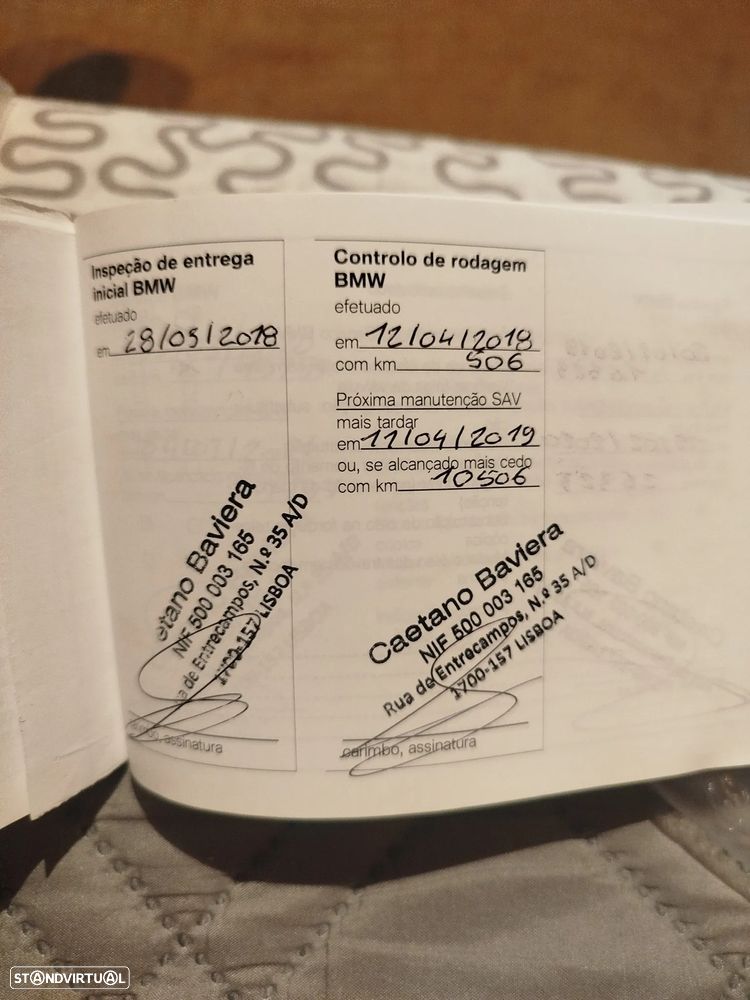 Inspeção de entrega
inicial BMW
efetuado
em 28/03/2018
etano Baviera
NIF 500 003 165
a de Entrecampos, N.º 35 A/D
1700-157 LISBOA
assinatura
Controlo de rodagem
BMW
efetuado
em 12/04/2018
com km 506
Próxima manutenção SAV
mais tardar
em 11/04/2019
ou, se alcançado mais cedo
com km 10506
Caetano Baviera
NIF 500 003 165
Rua de Entrecampos, N.º 35 A/D
1700-157 LISBOA
carimbo, assinatura
STANDVIRTUAL